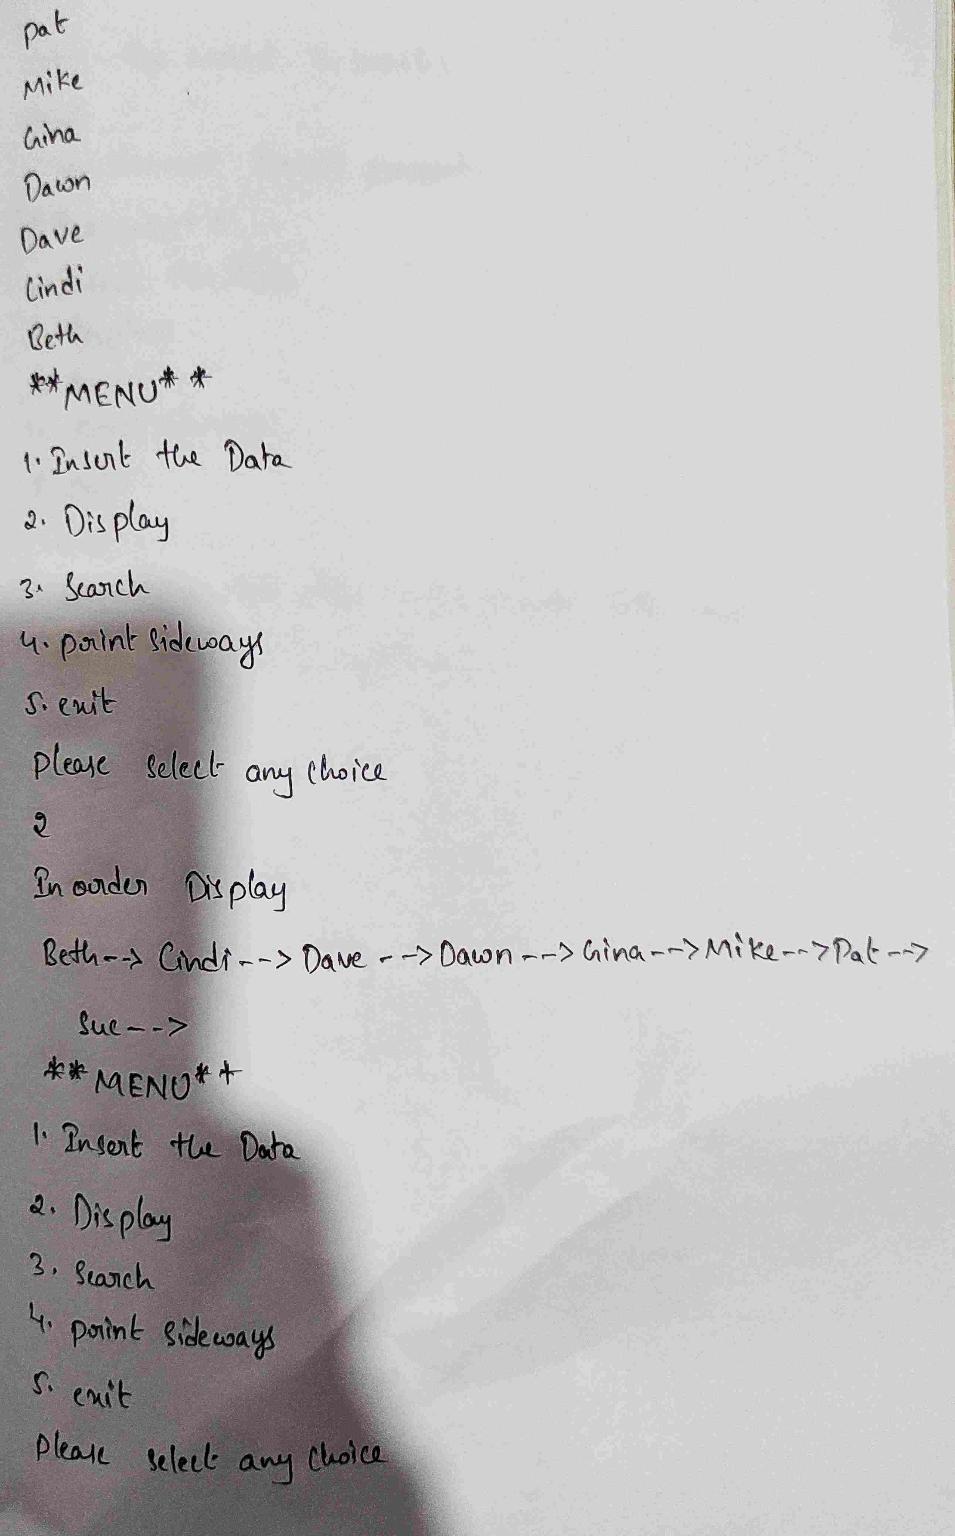 Pat
Mike
Gina
Dawn
Dave
Cindi
Beth
**MENU**
1. Insert the Data
2. Display
3. Search
4. print sideways
5. exit
please select any choice
2
In order Display
Beth--> Cindi--> Dave --> Dawn --> Gina--> Mike--> Pat-->
Sue-->
**MENU**
1. Insert the Data
2. Display
3. Search
4. print sideways
5. exit
please select any choice